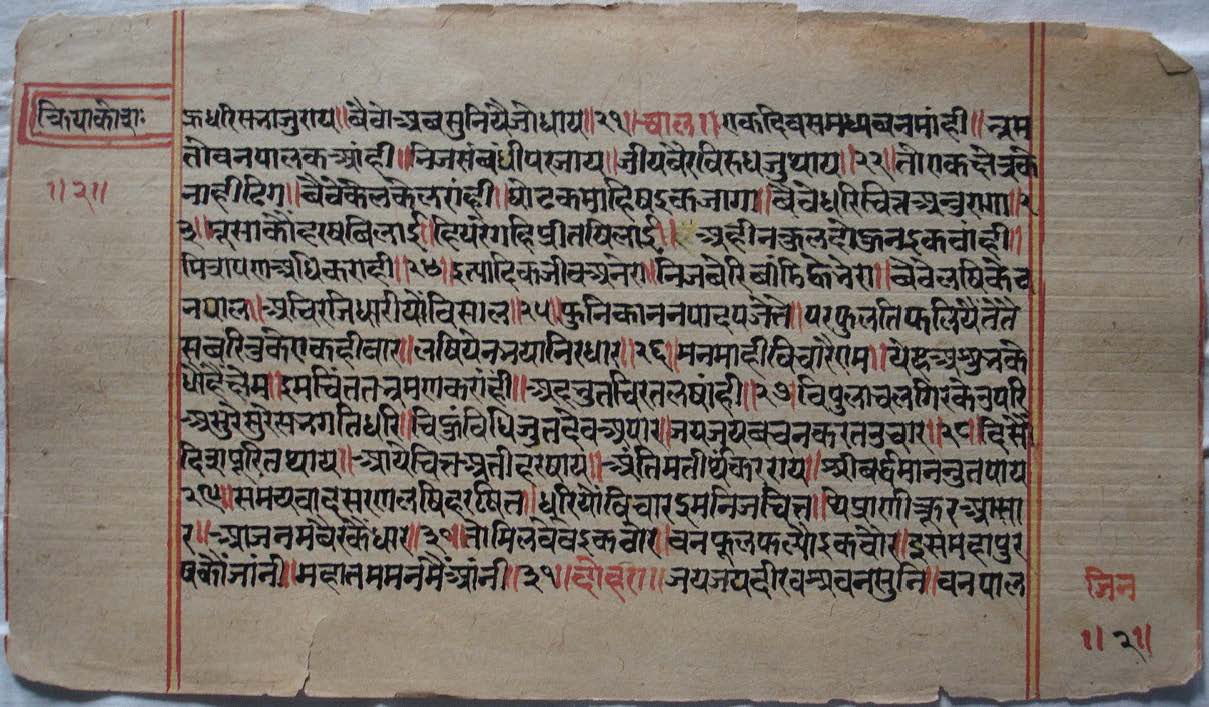 क्रियाकोशः
॥२॥
धरि सनाजुराय॥ बैठो अब सुनियै जो थाय॥२१॥ चाल॥ एक दिवस मध्य बन मांही॥ भ्रम
तो वनपालक आंही॥ निज संबंधी परजाय॥ जीय वैर विरुध जुथाय॥२२॥ तो एक क्षेत्रकै
नांही ढिग॥ बैठे केल करांही॥ घोटक महिष इक जागा॥ बैठे धरि चित्त अनुरागा॥२
३॥ मूसाकौं हरष बिलाई॥ हियरै गहि प्रीत षिलाई॥ अही नकुल दोऊन इक ठांही॥
मित्रापण अधिक करांही॥२४॥ इत्यादिक जीव अनेरा॥ निज बैर छांडि कै नेरा॥ बैठे लषि कै व
नपाल॥ अचिरजि धारीयो विसाल॥२५॥ फुनि कानन पादप जेते॥ पर फुलति फलियै तेते
सब रितुके एक ही बार॥ लषियेन नयानिरधार॥२६॥ मन मांही विचारै एम॥
इम चिंतत भ्रमण करांही॥ लषांही॥२७॥ विपुलाचलगिरके उपरि
असुर सुरेस नरगति धरि॥ चिहुं विधि जुत देव अपार॥ जय जय बचन करत उचार॥२८॥ दिसै
दिवि पूरित थाय॥ आये चित्त अती हरषाय॥ अंतिम तीर्थंकरराय॥ श्री बर्द्धमान नुत पाय
२९॥ समयवादसरण लषि हरषित॥ धरियो विचार इम निज चित्त॥ ये प्राणी क्रूर
र॥ आजनम वैरकै धार॥३०॥ तो मिल बैठे इक ठौर॥ बन फूल फल्यौ इक वोर॥ इस महापुर
षकौं जांनी॥ महातम मनमैं आंनी॥३१॥ दोहरा॥ जय जय दीरव श्रवन सुनि॥ वनपाल
जिन
॥२॥